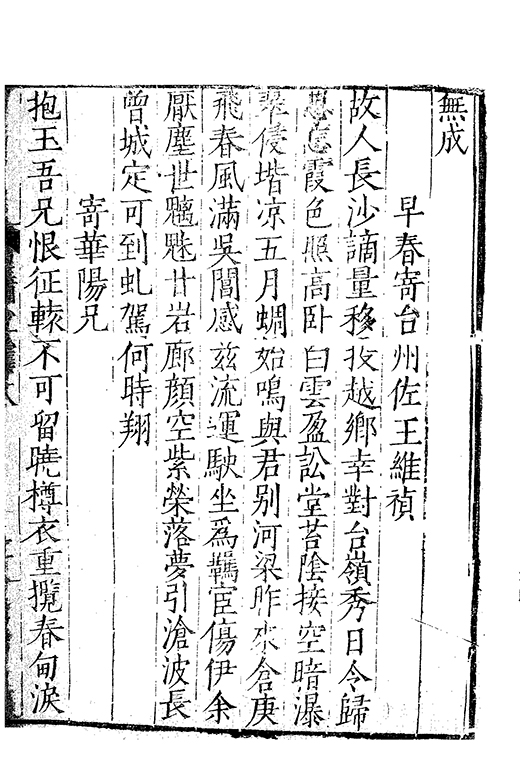 無成
早春寄台州佐王維禎
故人長沙謫量移投越鄉幸對台嶺秀日令歸
思怠霞色照高卧白雲盈訟堂苔陰接空暗瀑
翠侵堦凉五月蜩始鳴與君别河梁昨來倉庚
飛春風滿吳閶感兹流運駛坐爲羈宦傷伊余
厭塵世魑魅廿岩廊顔空紫榮落夢引滄波長
曾城定可到虬駕何時翔
寄華陽兄
抱玉吾兄恨征轅不可留曉樽衣重攬春甸淚